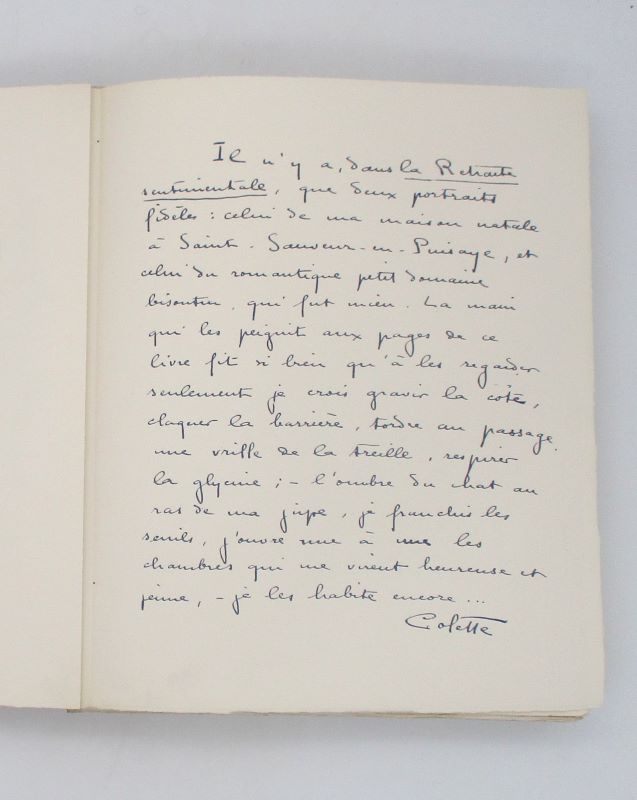 Il n'y a, dans la Retraite
sentimentale, que deux portraits
fidèles : celui de ma maison natale
à Saint-Sauveur-en-Puisaye, et
celui du romantique petit domaine
bisontin, qui fut mien. La main
qui les peignit aux pages de ce
livre fit si bien qu'à les regarder
seulement je crois gravir la côte,
claquer la barrière, tordre au passage
une vrille de la treille, respirer
la glycine ; - l'ombre du chat au
ras de ma jupe, je franchis les
seuils, j'ouvre une à une les
chambres qui me virent heureuse et
jeune, - je les habite encore ...
Colette